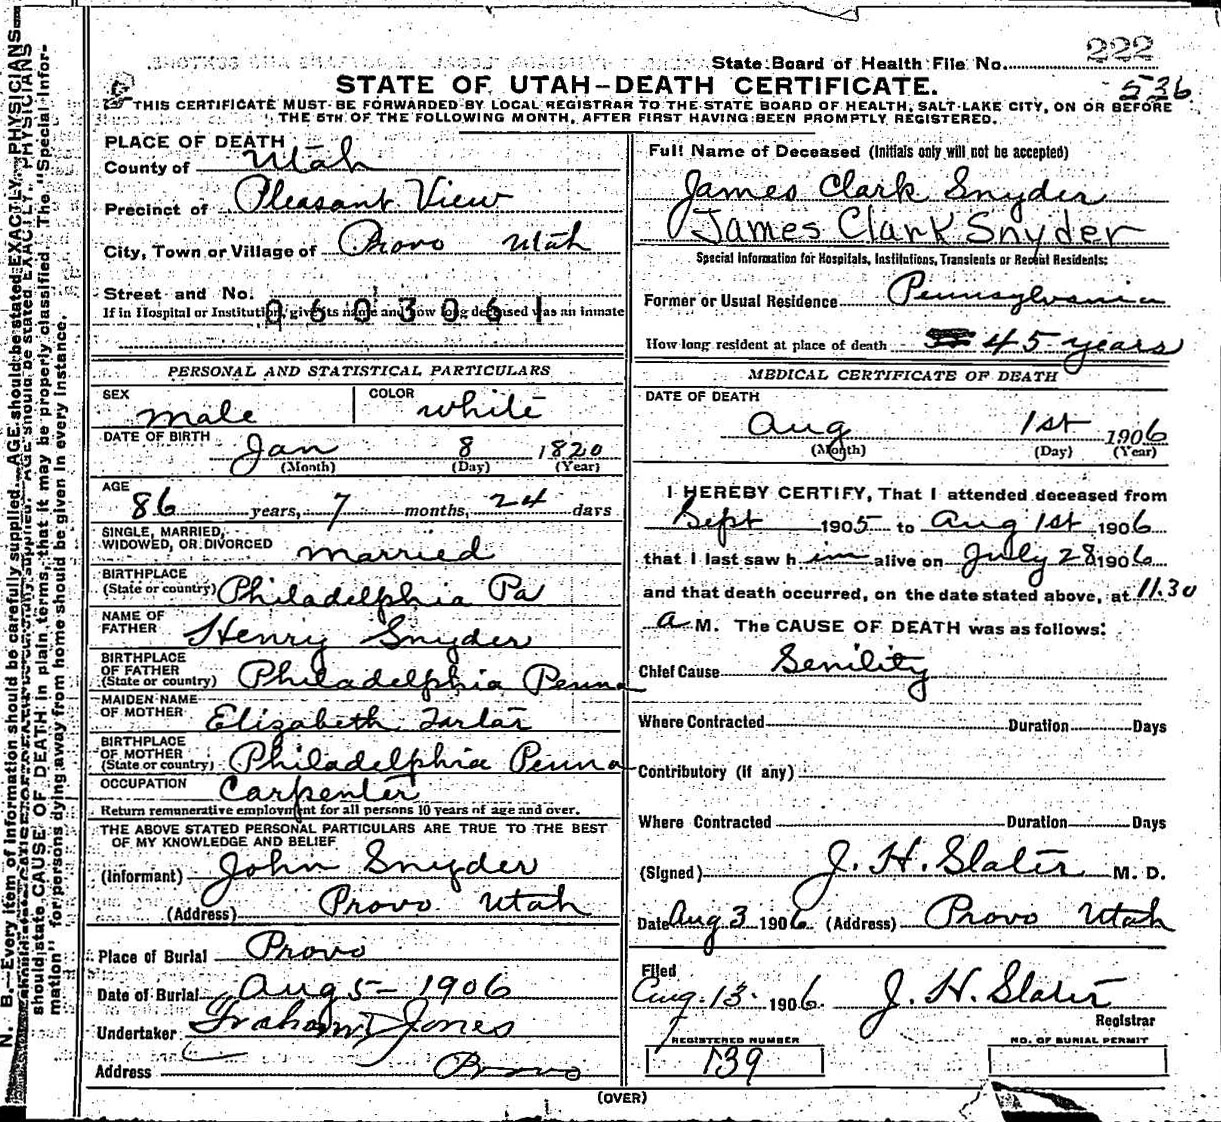 222
State Board of Health File No.
536
STATE OF UTAH-DEATH CERTIFICATE.
THIS CERTIFICATE MUST BE FORWARDED BY LOCAL REGISTRAR TO THE STATE BOARD OF HEALTH, SALT LAKE CITY, ON OR BEFORE
THE 5TH OF THE FOLLOWING MONTH, AFTER FIRST HAVING BEEN PROMPTLY REGISTERED.
PLACE OF DEATH
County of Utah
Precinct of Pleasant View
City, Town or Village of Provo Utah
Street and No.
If in Hospital or Institution, give its name and how long deceased was an inmate
0 6 0 3 0 6 1
PERSONAL AND STATISTICAL PARTICULARS
SEX male COLOR white
DATE OF BIRTH Jan 8 1820
(Month) (Day) (Year)
AGE
86 years, 7 months, 24 days
SINGLE, MARRIED,
WIDOWED, OR DIVORCED married
BIRTHPLACE
(State or country) Philadelphia Pa
NAME OF
FATHER Henry Snyder
BIRTHPLACE
OF FATHER
(State or country) Philadelphia Penna
MAIDEN NAME
OF MOTHER Elizabeth
BIRTHPLACE
OF MOTHER
(State or country) Philadelphia Penna
OCCUPATION Carpenter
Return remunerative employment for all persons 10 years of age and over.
THE ABOVE STATED PERSONAL PARTICULARS ARE TRUE TO THE BEST
OF MY KNOWLEDGE AND BELIEF
(Informant) John Snyder
(Address) Provo Utah
Place of Burial Provo
Date of Burial Aug 5- 1906
Undertaker Jones
Address Provo
Full Name of Deceased (Initials only will not be accepted)
James Clark Snyder
James Clark Snyder
Special Information for Hospitals, Institutions, Transients or Recent Residents:
Former or Usual Residence Pennsylvania
How long resident at place of death 45 years
MEDICAL CERTIFICATE OF DEATH
DATE OF DEATH
Aug 1st 1906
(Month) (Day) (Year)
I HEREBY CERTIFY, That I attended deceased from
Sept 1905 to Aug 1st 1906
that I last saw him alive on July 28 1906
and that death occurred, on the date stated above, at 11.30
a M. The CAUSE OF DEATH was as follows:
Chief Cause Senility
Where Contracted Duration Days
Contributory (if any)
Where Contracted Duration Days
(Signed) J. H. Slater M. D.
Date Aug 3 1906 (Address) Provo Utah
Filed
Aug. 13. 1906. J. H. Slater
Registrar
REGISTERED NUMBER
139
NO. OF BURIAL PERMIT
(OVER)
N. B.—Every item of information should be carefully supplied. AGE should be stated EXACTLY. PHYSICIANS
should state CAUSE OF DEATH in plain terms, that it may be properly classified. The "Special Infor-
mation" for persons dying away from home should be given in every instance.